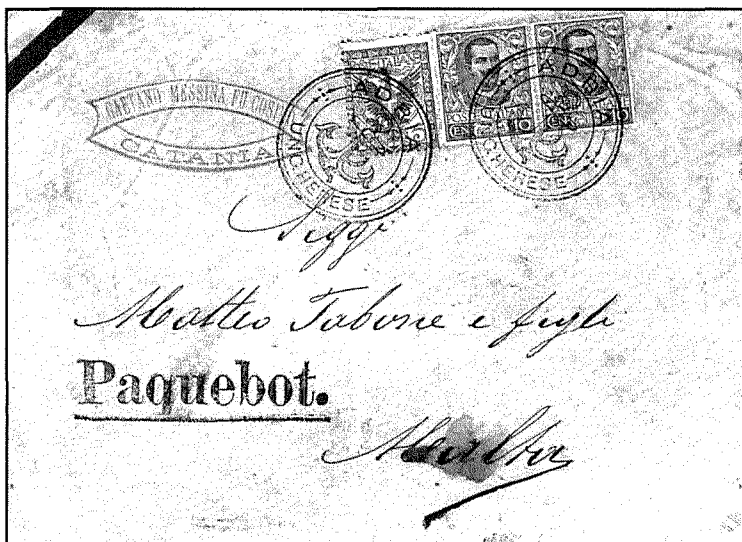 GAETANO MESSINA FU COSIMO
CATANIA
ADRIA
UNGHERESE
ADRIA
UNGHERESE
10
Sigg.
Matteo Tabone e figli
Paquebot.
Malta